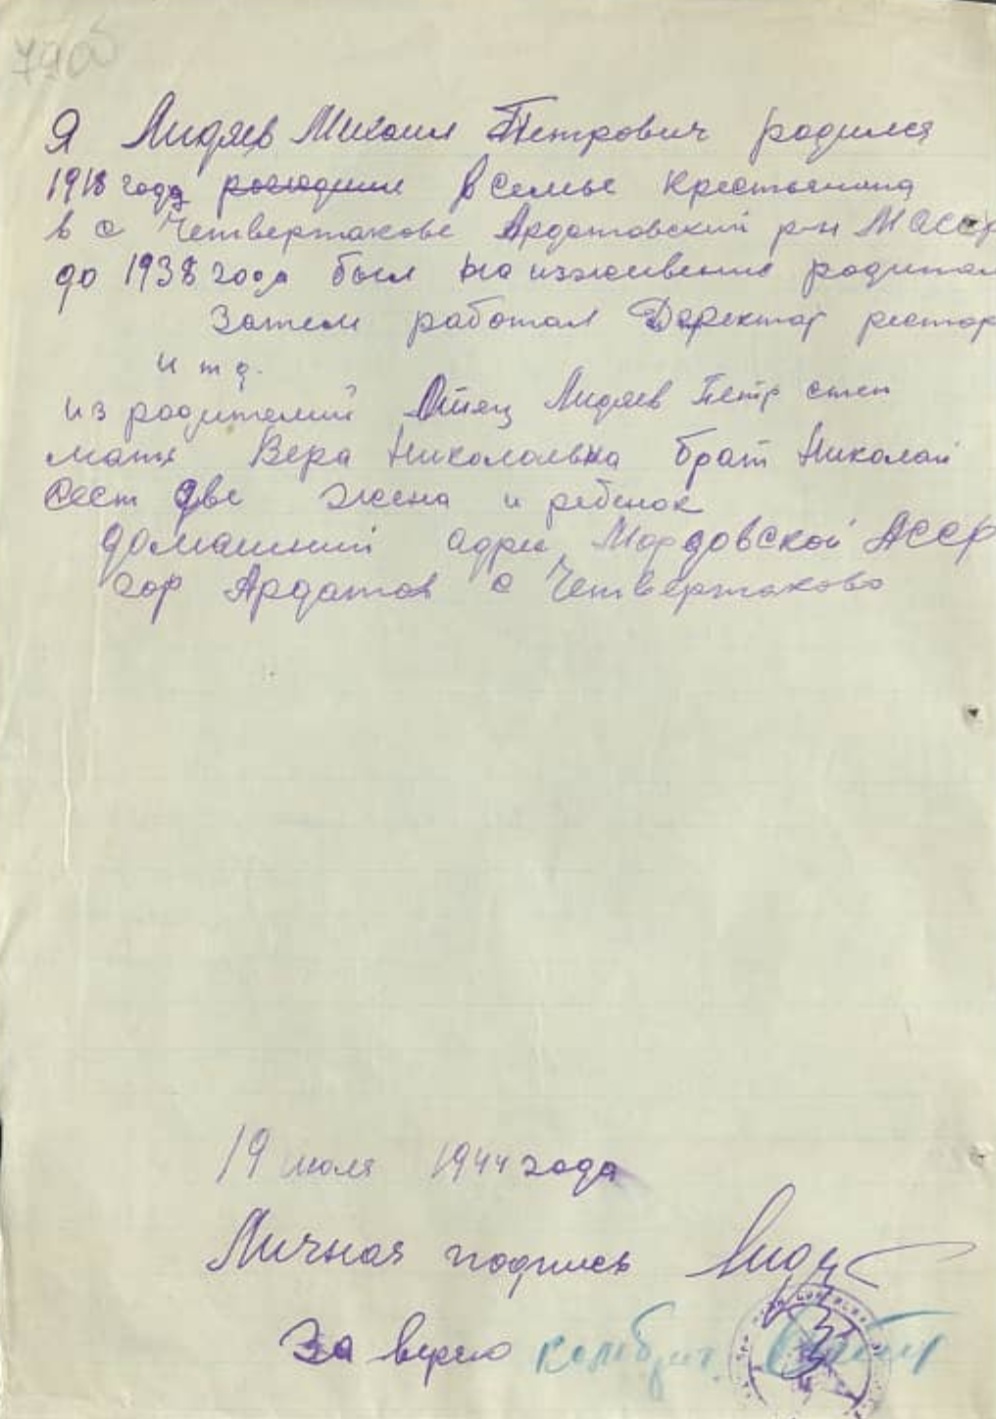 790б
Я Лидяев Михаил Петрович родился
1918 году в семье крестьенина
в с Четвертакове Ардатовский р-н МАССР
до 1938 года был на изживении родител
Затем работал Деректар рестор
и т д.
из родителий Отец Лидяев Петр степ
мать Вера Николольвна брат Николай
сест две жена и ребенок
домашний адрес Мордовской АССР
гор Ардатов с Четвертаково
19 июля 1944 года
Личная подпись Лидя
За верно комбриг